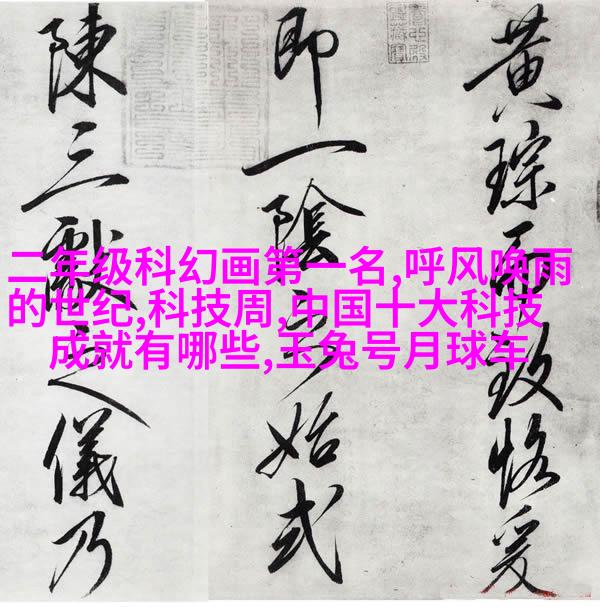 黄琮而致恪爰
即一陰之始式
陳三獻之儀乃
二年级科幻画第一名,呼风唤雨
的世纪,科技周,中国十大科技
成就有哪些,玉兔号月球车